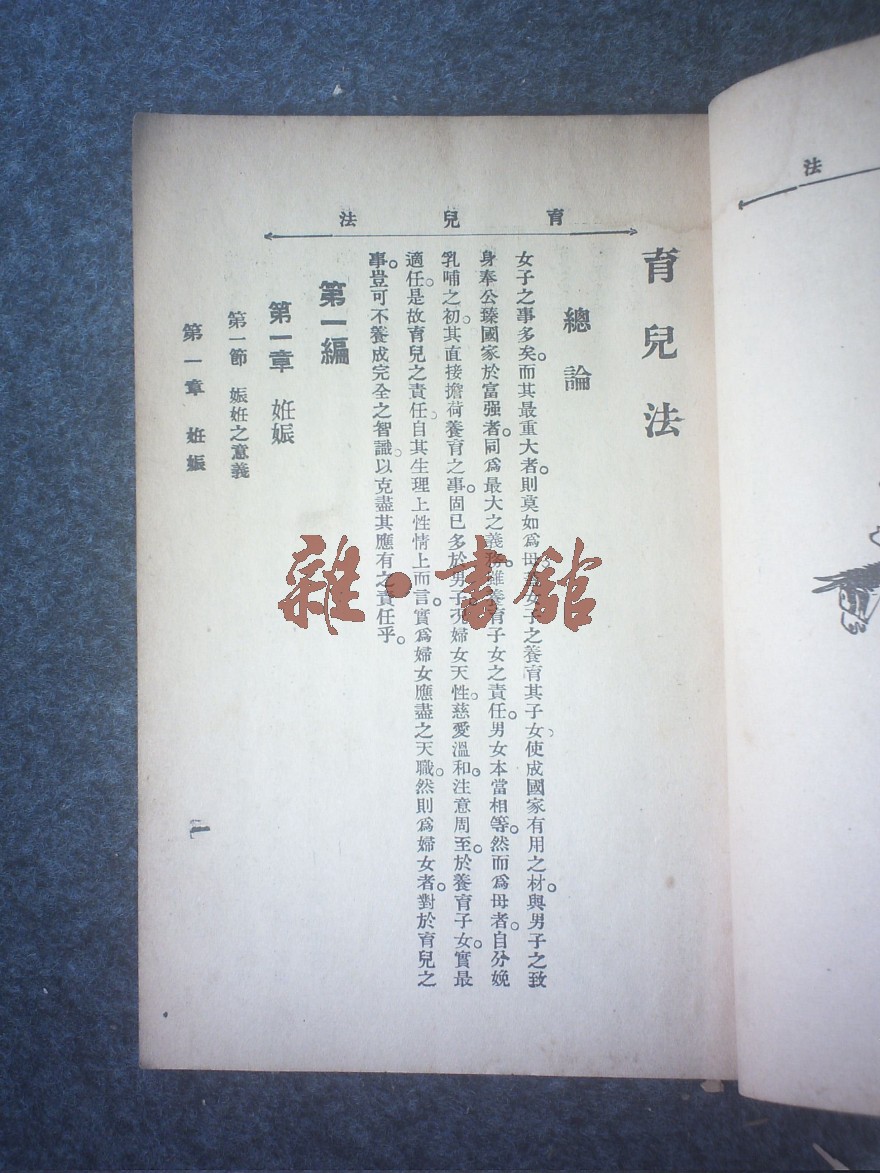 育兒法
育兒法
總論
女子之事多矣。而其最重大者。則莫如爲母。蓋女子之養育其子女、使成國家有用之材。與男子之致
身奉公臻國家於富强者。同爲最大之義務。雖養育子女之責任。男女本當相等。然而爲母者。自分娩
乳哺之初。其直接擔荷養育之事。固已多於男子。况婦女天性。慈愛溫和。注意周至。於養育子女。實最
適任。是故育兒之責任。自其生理上性情上而言。實爲婦女應盡之天職。然則爲婦女者。對於育兒之
事。豈可不養成完全之智識。以克盡其應有之責任乎。
第一編
第一章 妊娠
第一節 娠姙之意義
第一章 妊娠
一
法
雜·書館